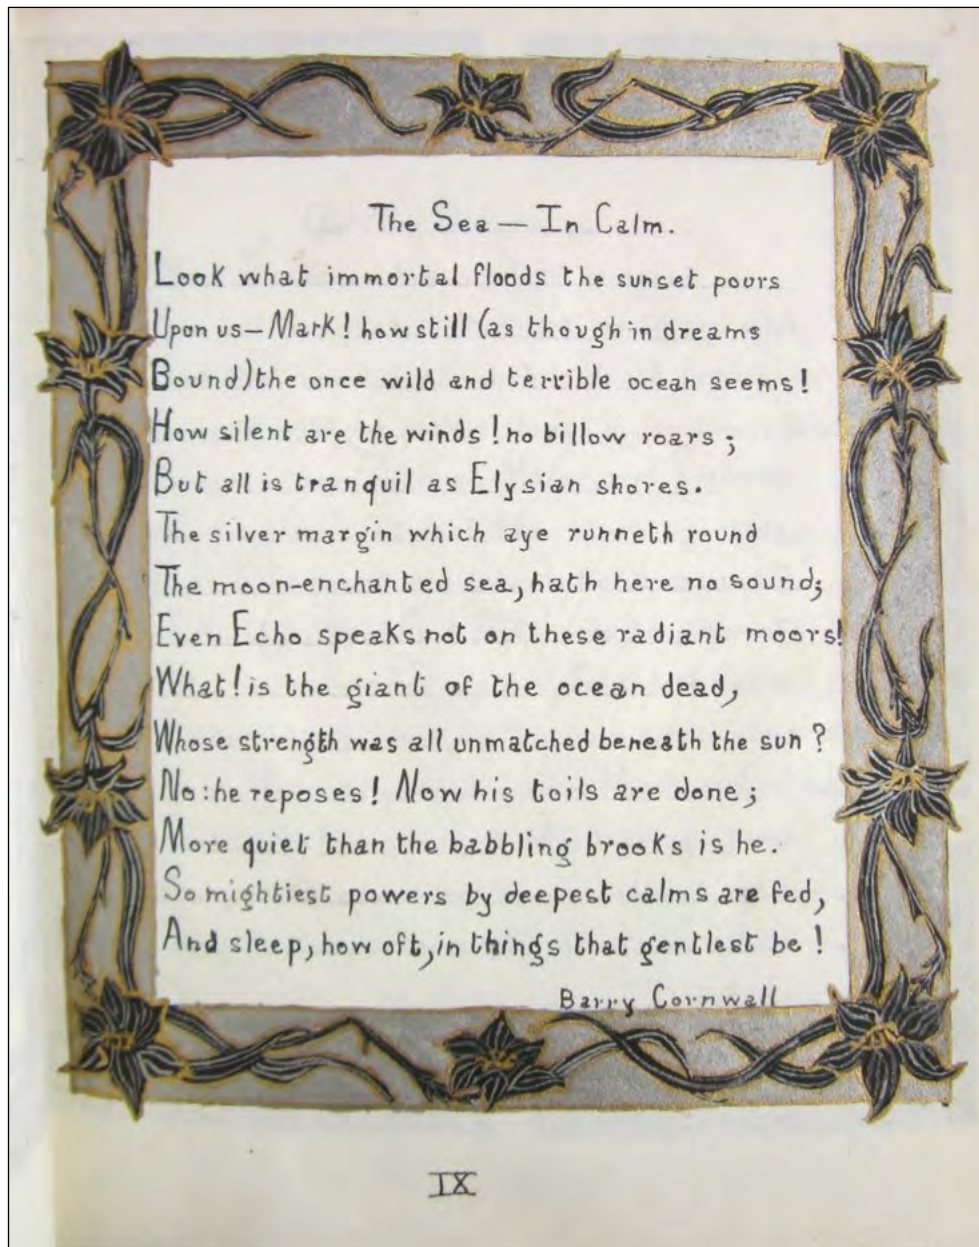 The Sea — In Calm.
Look what immortal floods the sunset pours
Upon us — Mark! how still (as though in dreams
Bound) the once wild and terrible ocean seems!
How silent are the winds! no billow roars;
But all is tranquil as Elysian shores.
The silver margin which aye runneth round
The moon-enchanted sea, hath here no sound;
Even Echo speaks not on these radiant moors!
What! is the giant of the ocean dead,
Whose strength was all unmatched beneath the sun?
No: he reposes! Now his toils are done;
More quiet than the babbling brooks is he.
So mightiest powers by deepest calms are fed,
And sleep, how oft, in things that gentlest be!
Barry Cornwall
IX